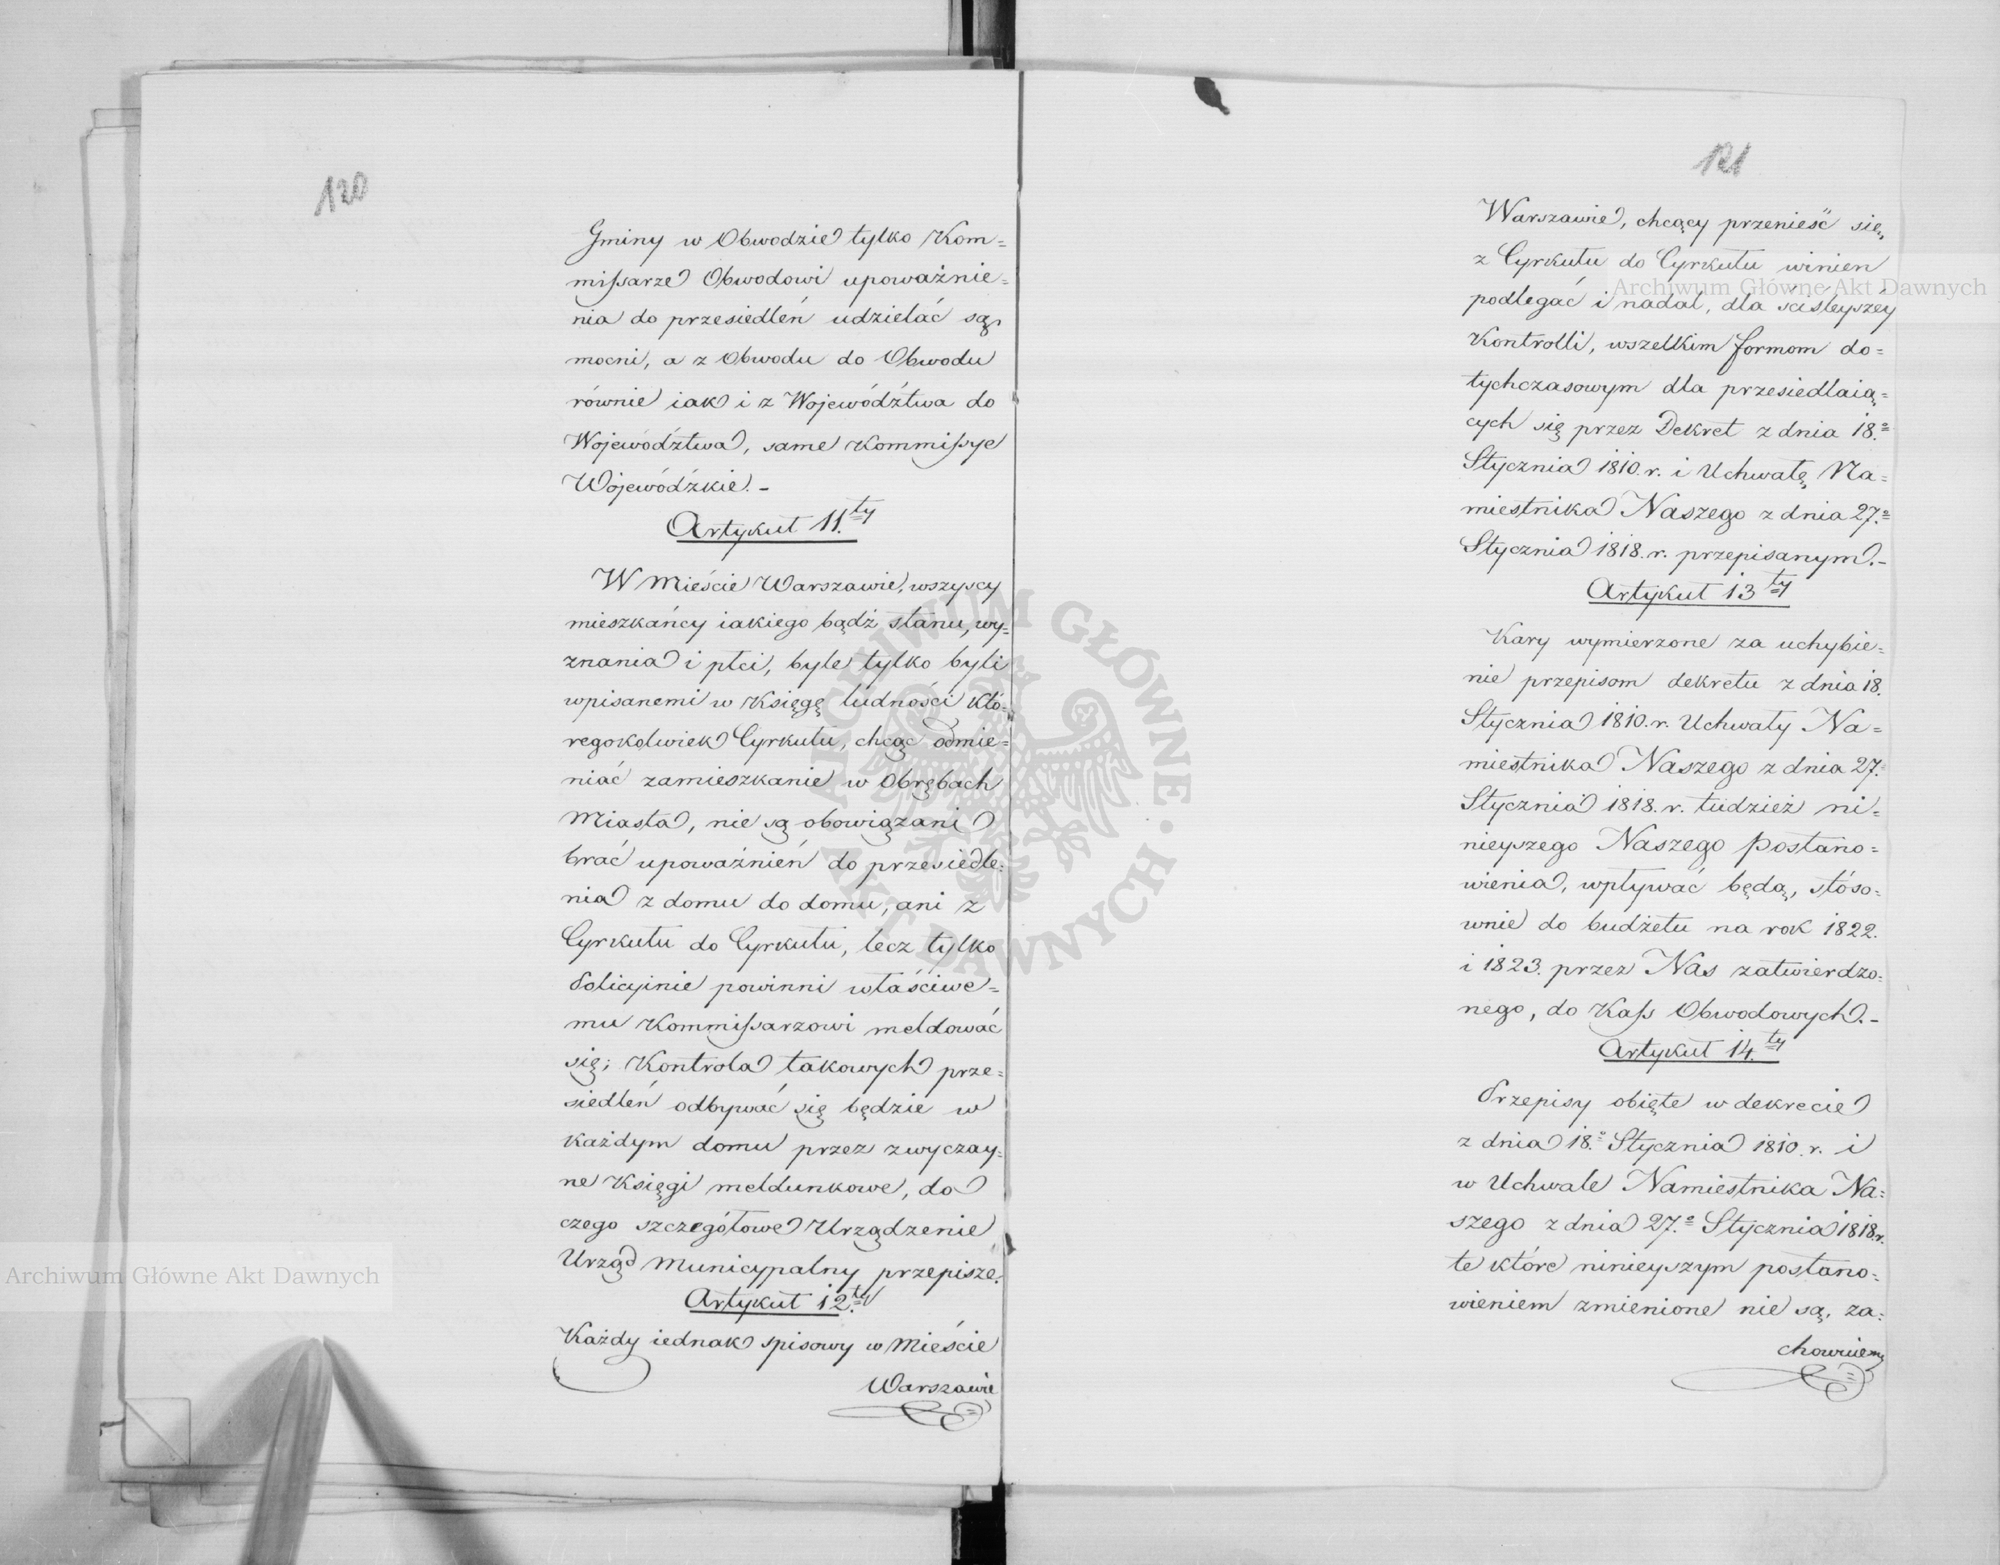 120
Gminy w Obwodzie tylko Kom=
missarze Obwodowi upoważnie=
nia do przesiedleń udzielać są
mocni, a z Obwodu do Obwodu
równie iak i z Województwa do
Województwa, same Kommissye
Wojewódzkie.-
Artykuł 11.ty
W Mieście Warszawie, wszyscy
mieszkańcy iakiego bądź stanu, wy=
znania i płci, byle tylko byli
wpisanemi w Księgę ludności któ=
regokolwiek Cyrkułu, chcąc odmie=
niać zamieszkanie w Obrębach
Miasta, nie są obowiązani
brać upoważnień do przesiedle=
nia z domu do domu, ani z
Cyrkułu do Cyrkułu, lecz tylko
Policyinie powinni właściwe=
mu Kommissarzowi meldować
się; Kontrola takowych prze=
siedleń odbywać się będzie w
każdym domu przez zwyczay=
ne Księgi meldunkowe, do
czego szczegółowe Urządzenie
Urząd Municypalny przepisze.
Artykuł 12.ty
Każdy iednak spisowy w Mieście
Warszawie
121
Warszawie, chcący przenieść się,
z Cyrkułu do Cyrkułu winien
podlegać i nadal, dla ściśleyszéy
Kontrolli, wszelkim formom do=
tychczasowym dla przesiedlaią=
cych się przez Dekret z dnia 18.o
Stycznia 1810. r. i Uchwałę Na=
miestnika Naszego z dnia 27.o
Stycznia 1818. r. przepisanym.-
Artykuł 13ty
Kary wymierzone za uchybie=
nie przepisom dekretu z dnia 18.
Stycznia 1810. r. Uchwały Na=
miestnika Naszego z dnia 27.o
Stycznia 1818. r. tudzież ni=
nieyszego Naszego Postano=
wienia, wpływać będą, stóso=
wnie do budżetu na rok 1822.
i 1823. przez Nas zatwierdzo=
nego, do Kass Obwodowych.-
Artykuł 14.ty
Przepisy obięte w dekrecie
z dnia 18.o Stycznia 1810. r. i
w Uchwale Namiestnika Na=
szego z dnia 27.o Stycznia 1818. r.
te które ninieyszym postano=
wieniem zmienione nie są, za=
chowuiemy
Archiwum Główne Akt Dawnych
Archiwum Główne Akt Dawnych
ARCHIWUM GŁÓWNE · AKT DAWNYCH ·